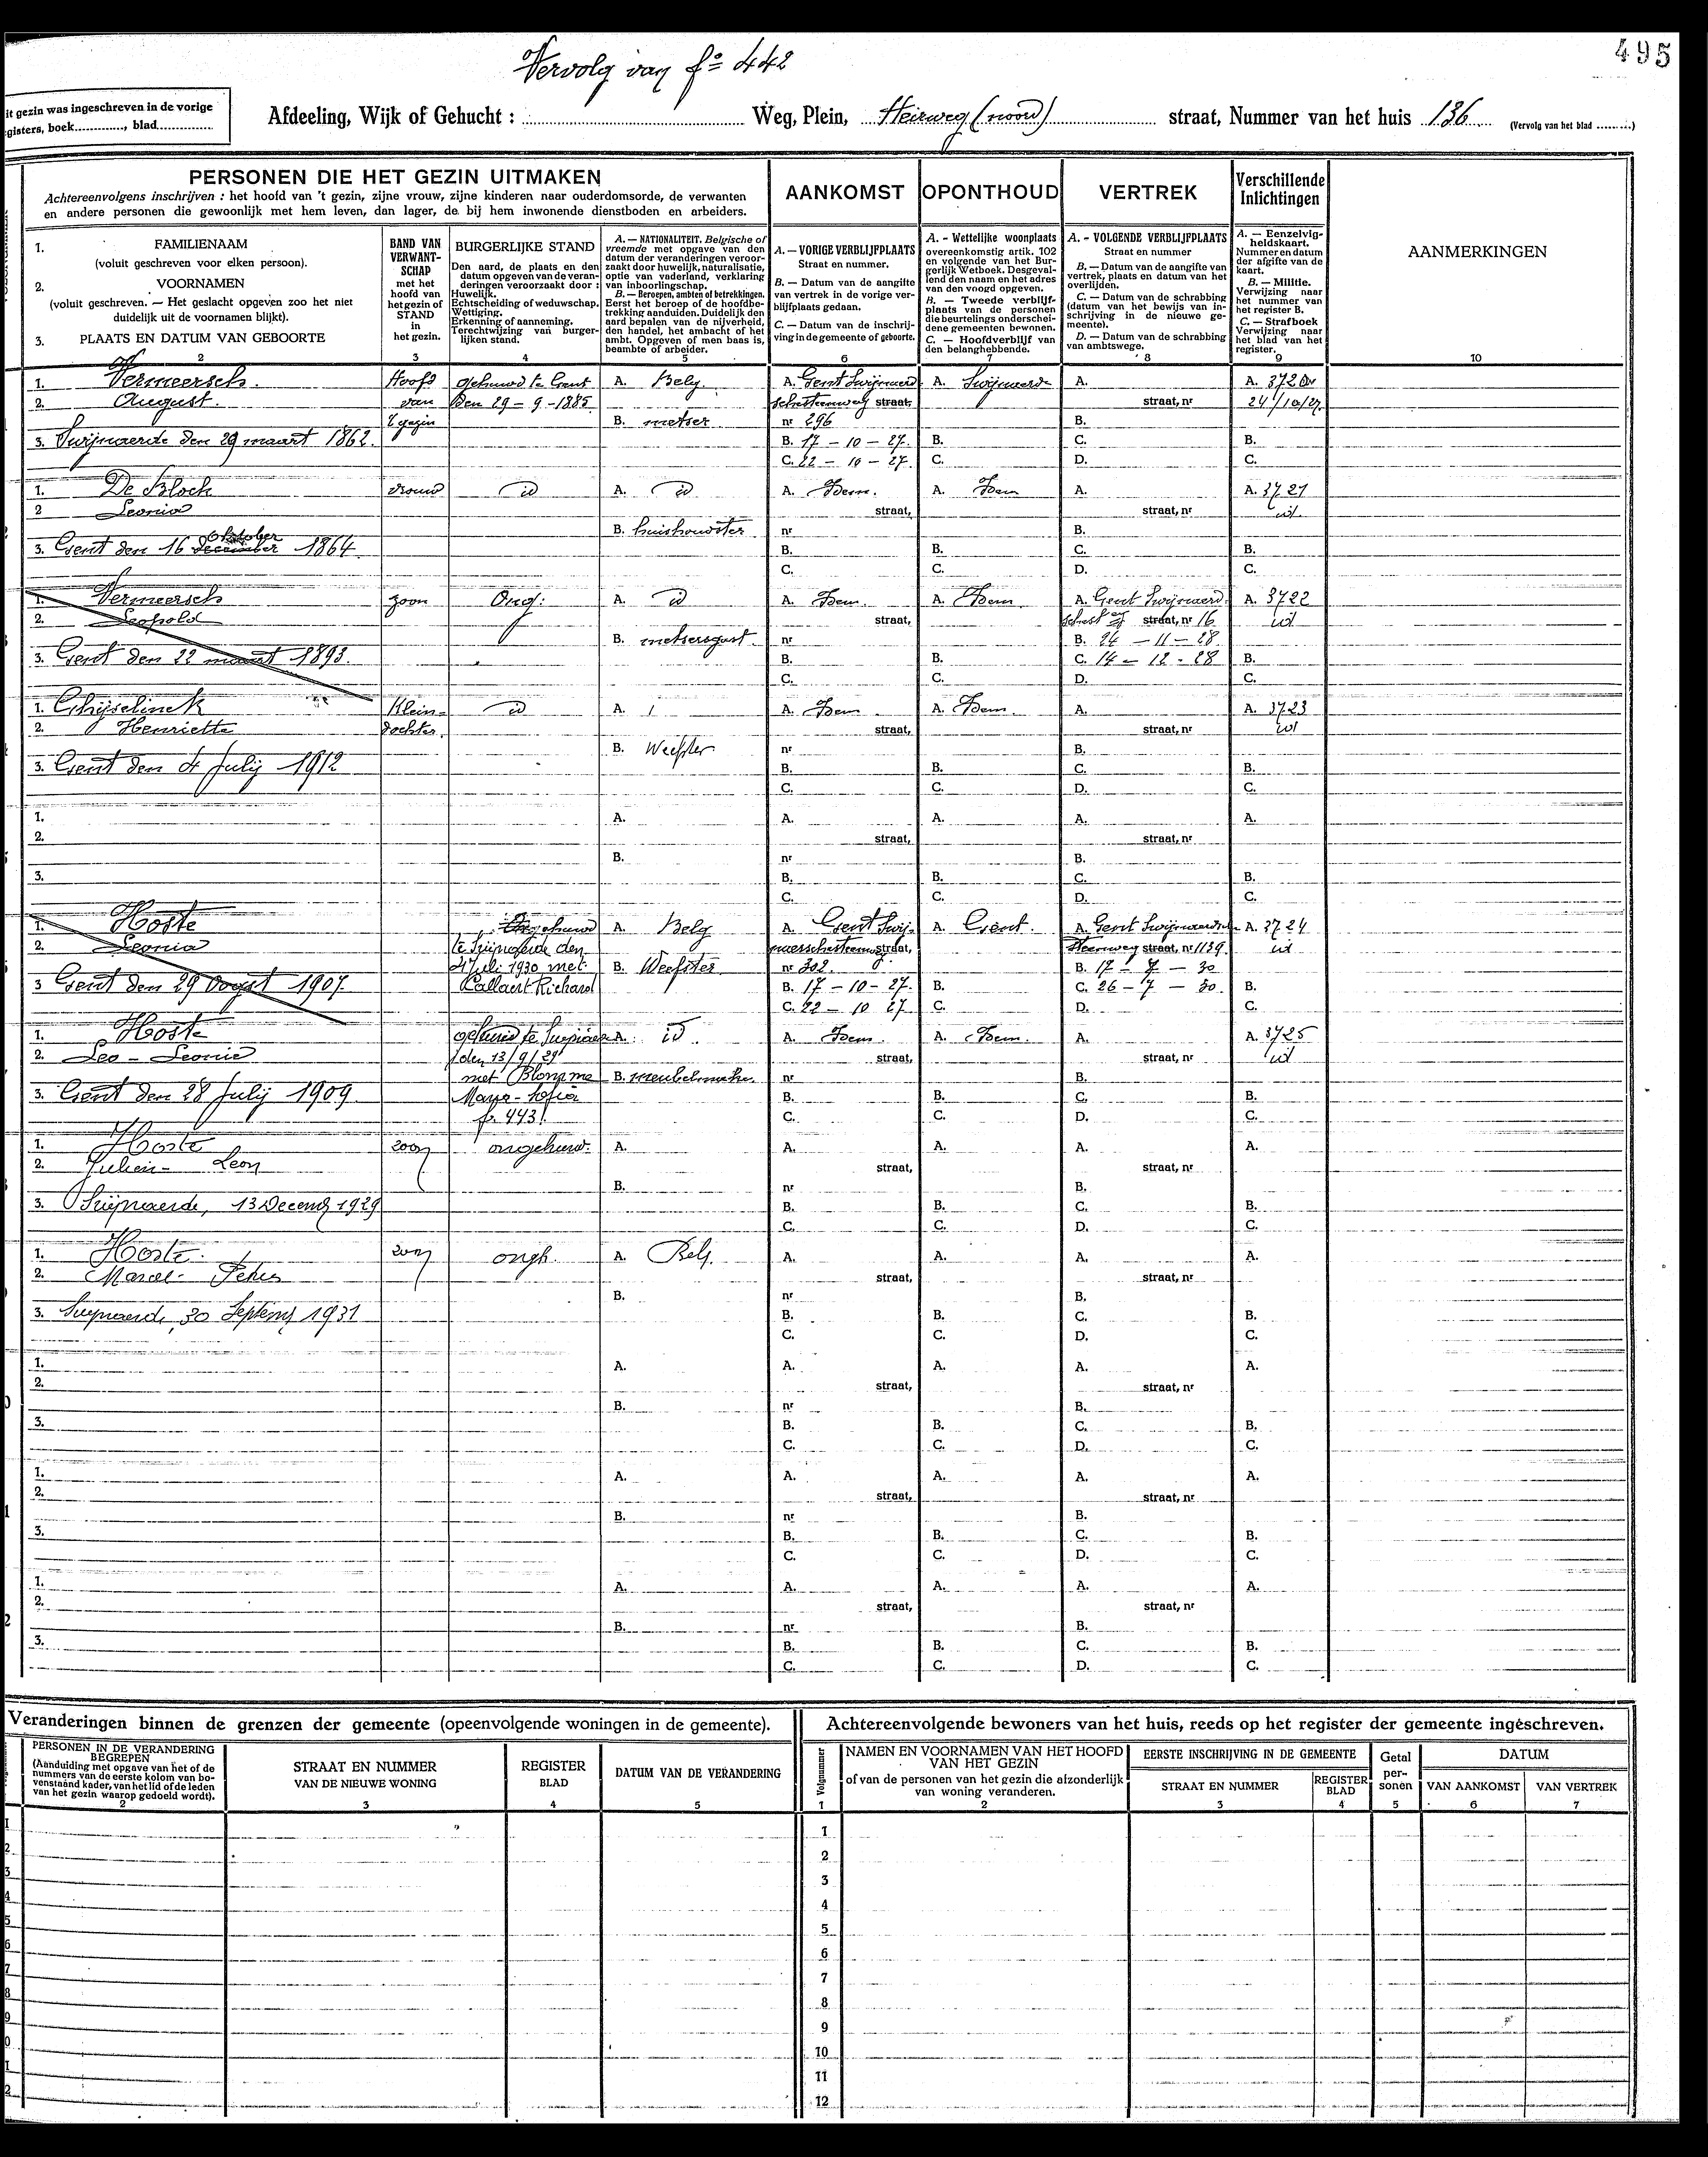 495
Vervolg van fo 442
it gezin was ingeschreven in de vorige
gisters, boek............, blad...............
Afdeeling, Wijk of Gehucht : Weg, Plein, Heirweg (noord) straat, Nummer van het huis 136 (Vervolg van het blad .........)
PERSONEN DIE HET GEZIN UITMAKEN
Achtereenvolgens inschrijven : het hoofd van 't gezin, zijne vrouw, zijne kinderen naar ouderdomsorde, de verwanten
en andere personen die gewoonlijk met hem leven, dan lager, de bij hem inwonende dienstboden en arbeiders.
AANKOMST
OPONTHOUD
VERTREK
Verschillende
Inlichtingen
1. FAMILIENAAM
(voluit geschreven voor elken persoon).
2. VOORNAMEN
(voluit geschreven. — Het geslacht opgeven zoo het niet
duidelijk uit de voornamen blijkt).
3. PLAATS EN DATUM VAN GEBOORTE
2
BAND VAN
VERWANT-
SCHAP
met het
hoofd van
het gezin of
STAND
in
het gezin.
3
BURGERLIJKE STAND
Den aard, de plaats en den
datum opgeven van de veran-
deringen veroorzaakt door :
Huwelijk.
Echtscheiding of weduwschap.
Wettiging.
Erkenning of aanneming.
Terechtwijzing van burger-
lijken stand.
4
A. — NATIONALITEIT. Belgische of
vreemde met opgave van den
datum der veranderingen veroor-
zaakt door huwelijk, naturalisatie,
optie van vaderland, verklaring
van inboorlingschap.
B. — Beroepen, ambten of betrekkingen.
Eerst het beroep of de hoofdbe-
trekking aanduiden. Duidelijk den
aard bepalen van de nijverheid,
den handel, het ambacht of het
ambt. Opgeven of men baas is,
beambte of arbeider.
5
A. — VORIGE VERBLIJFPLAATS
Straat en nummer.
B. — Datum van de aangifte
van vertrek in de vorige ver-
blijfplaats gedaan.
C. — Datum van de inschrij-
ving in de gemeente of geboorte.
6
A. - Wettelijke woonplaats
overeenkomstig artik. 102
en volgende van het Bur-
gerlijk Wetboek. Desgeval-
lend den naam en het adres
van den voogd opgeven.
B. — Tweede verblijf-
plaats van de personen
die beurtelings onderschei-
dene gemeenten bewonen.
C. — Hoofdverblijf van
den belanghebbende.
7
A. - VOLGENDE VERBLIJFPLAATS
Straat en nummer
B. — Datum van de aangifte van
vertrek, plaats en datum van het
overlijden.
C. — Datum van de schrabbing
(datum van het bewijs van in-
schrijving in de nieuwe ge-
meente).
D. — Datum van de schrabbing
van ambtswege.
8
A. — Eenzelvig-
heidskaart.
Nummer en datum
der afgifte van de
kaart.
B. — Militie.
Verwijzing naar
het nummer van
het register B.
C. — Strafboek
Verwijzing naar
het blad van het
register.
9
AANMERKINGEN
10
1. Vermeersch. Hoofd gehuwd te Gent A. Belg. A. Gent Swijnaerd A. Swijnaerde A. A. 3720
2. August. van den 29 - 9 - 1885. schesteenweg straat, straat, nr 24/10/27
't gezin B. metser nr 296 B.
3. Swijnaerde den 29 maart 1862. B. 17 - 10 - 27. B. C. B.
C. 22 - 10 - 27. C. D. C.
1. De Block vrouw id A. id A. Idem. A. Idem A. A. 3721
2 Leonia straat, straat, nr id.
B. huishoudster nr B.
oktober
3. Gent den 16 december 1864. B. B. C. B.
C. C. D. C.
1. Vermeersch zoon Ong: A. id A. Idem. A. Idem A. Gent Swijnaerd. A. 3722
2. Leopold straat, straat, nr 16 id
B. metsersgast. nr B. 24 - 11 - 28
3. Gent den 22 maart 1893. B. B. C. 14 - 12 - 28 B.
C. C. D. C.
1. Ghijselinck Klein= id A. A. Idem A. Idem. A. A. 3723
2. Henriette dochter. straat, straat, nr id
B. Weefster nr B.
3. Gent den 4 July 1912 B. B. C. B.
C. C. D. C.
1. A. A. A. A. A.
2. straat, straat, nr
B. nr B.
3. B. B. C. B.
C. C. D. C.
1. Hoste gehuwd A. Belg A. Gent Swij- A. Gent. A. Gent Swijnaardsche A. 3724
2. Leonia te Swijnaerde den naerschesteenweg straat, Steenweg straat, nr 1139. id
4 Juli 1930 met B. Weefster nr 302. B. 17 - 7 - 30
3 Gent den 29 Oogst 1907. Callaert Richard B. 17 - 10 - 27. B. C. 26 - 7 - 30. B.
C. 22 - 10 27. C. D. C.
1. Hoste gehuwd te A. id. A. Idem. A. Idem. A. A. 3725
2. Leo - Leonie den 13/9/29 straat, straat, nr id
met Blomme B. meubelmaker. nr B.
3. Gent den 28 July 1909. B. B. C. B.
f. 443. C. C. D. C.
1. Hoste zoon ongehuw. A. A. A. A. A.
2. Julien - Leon straat, straat, nr
B. nr B.
3. Swijnaerde, 13 Decemb 1929 B. B. C. B.
C. C. D. C.
1. Hoste. zoon ongh. A. Belg. A. A. A. A.
2. Marcel - straat, straat, nr
B. nr B.
3. Swijnaerde, 30 Septemb 1931 B. B. C. B.
C. C. D. C.
1. A. A. A. A. A.
2. straat, straat, nr
B. nr B.
3. B. B. C. B.
C. C. D. C.
1. A. A. A. A. A.
2. straat, straat, nr
B. nr B.
3. B. B. C. B.
C. C. D. C.
1. A. A. A. A. A.
2. straat, straat, nr
B. nr B.
3. B. B. C. B.
C. C. D. C.
Veranderingen binnen de grenzen der gemeente (opeenvolgende woningen in de gemeente).
PERSONEN IN DE VERANDERING
BEGREPEN
(Aanduiding met opgave van het of de
nummers van de eerste kolom van bo-
venstaand kader, van het lid of de leden
van het gezin waarop gedoeld wordt).
2
STRAAT EN NUMMER
VAN DE NIEUWE WONING
3
REGISTER
BLAD
4
DATUM VAN DE VERANDERING
5
Achtereenvolgende bewoners van het huis, reeds op het register der gemeente ingeschreven.
Volgnummer
1
NAMEN EN VOORNAMEN VAN HET HOOFD
VAN HET GEZIN
of van de personen van het gezin die afzonderlijk
van woning veranderen.
2
EERSTE INSCHRIJVING IN DE GEMEENTE
STRAAT EN NUMMER
3
REGISTER
BLAD
4
Getal
per-
sonen
5
DATUM
VAN AANKOMST
6
VAN VERTREK
7
1
2
3
4
5
6
7
8
9
10
11
12